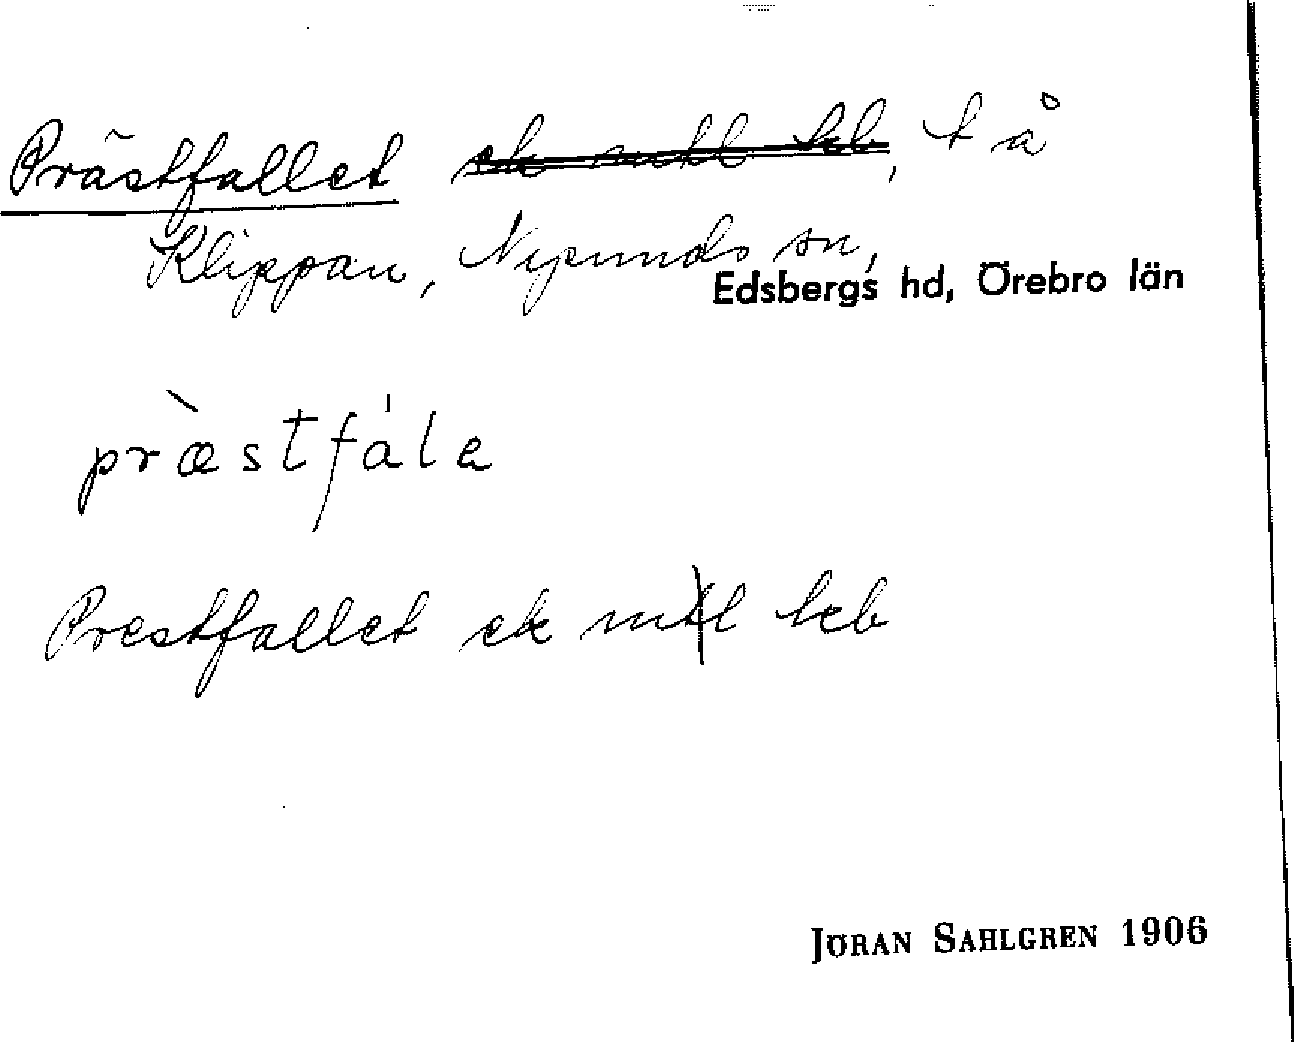 Prästfallet ek mtl kcb, t å
Klippan, Nysunds sn,
Edsbergs hd, Örebro län
præstfala
Prestfallet ek mtl kcb
JÖRAN SAHLGREN 1906